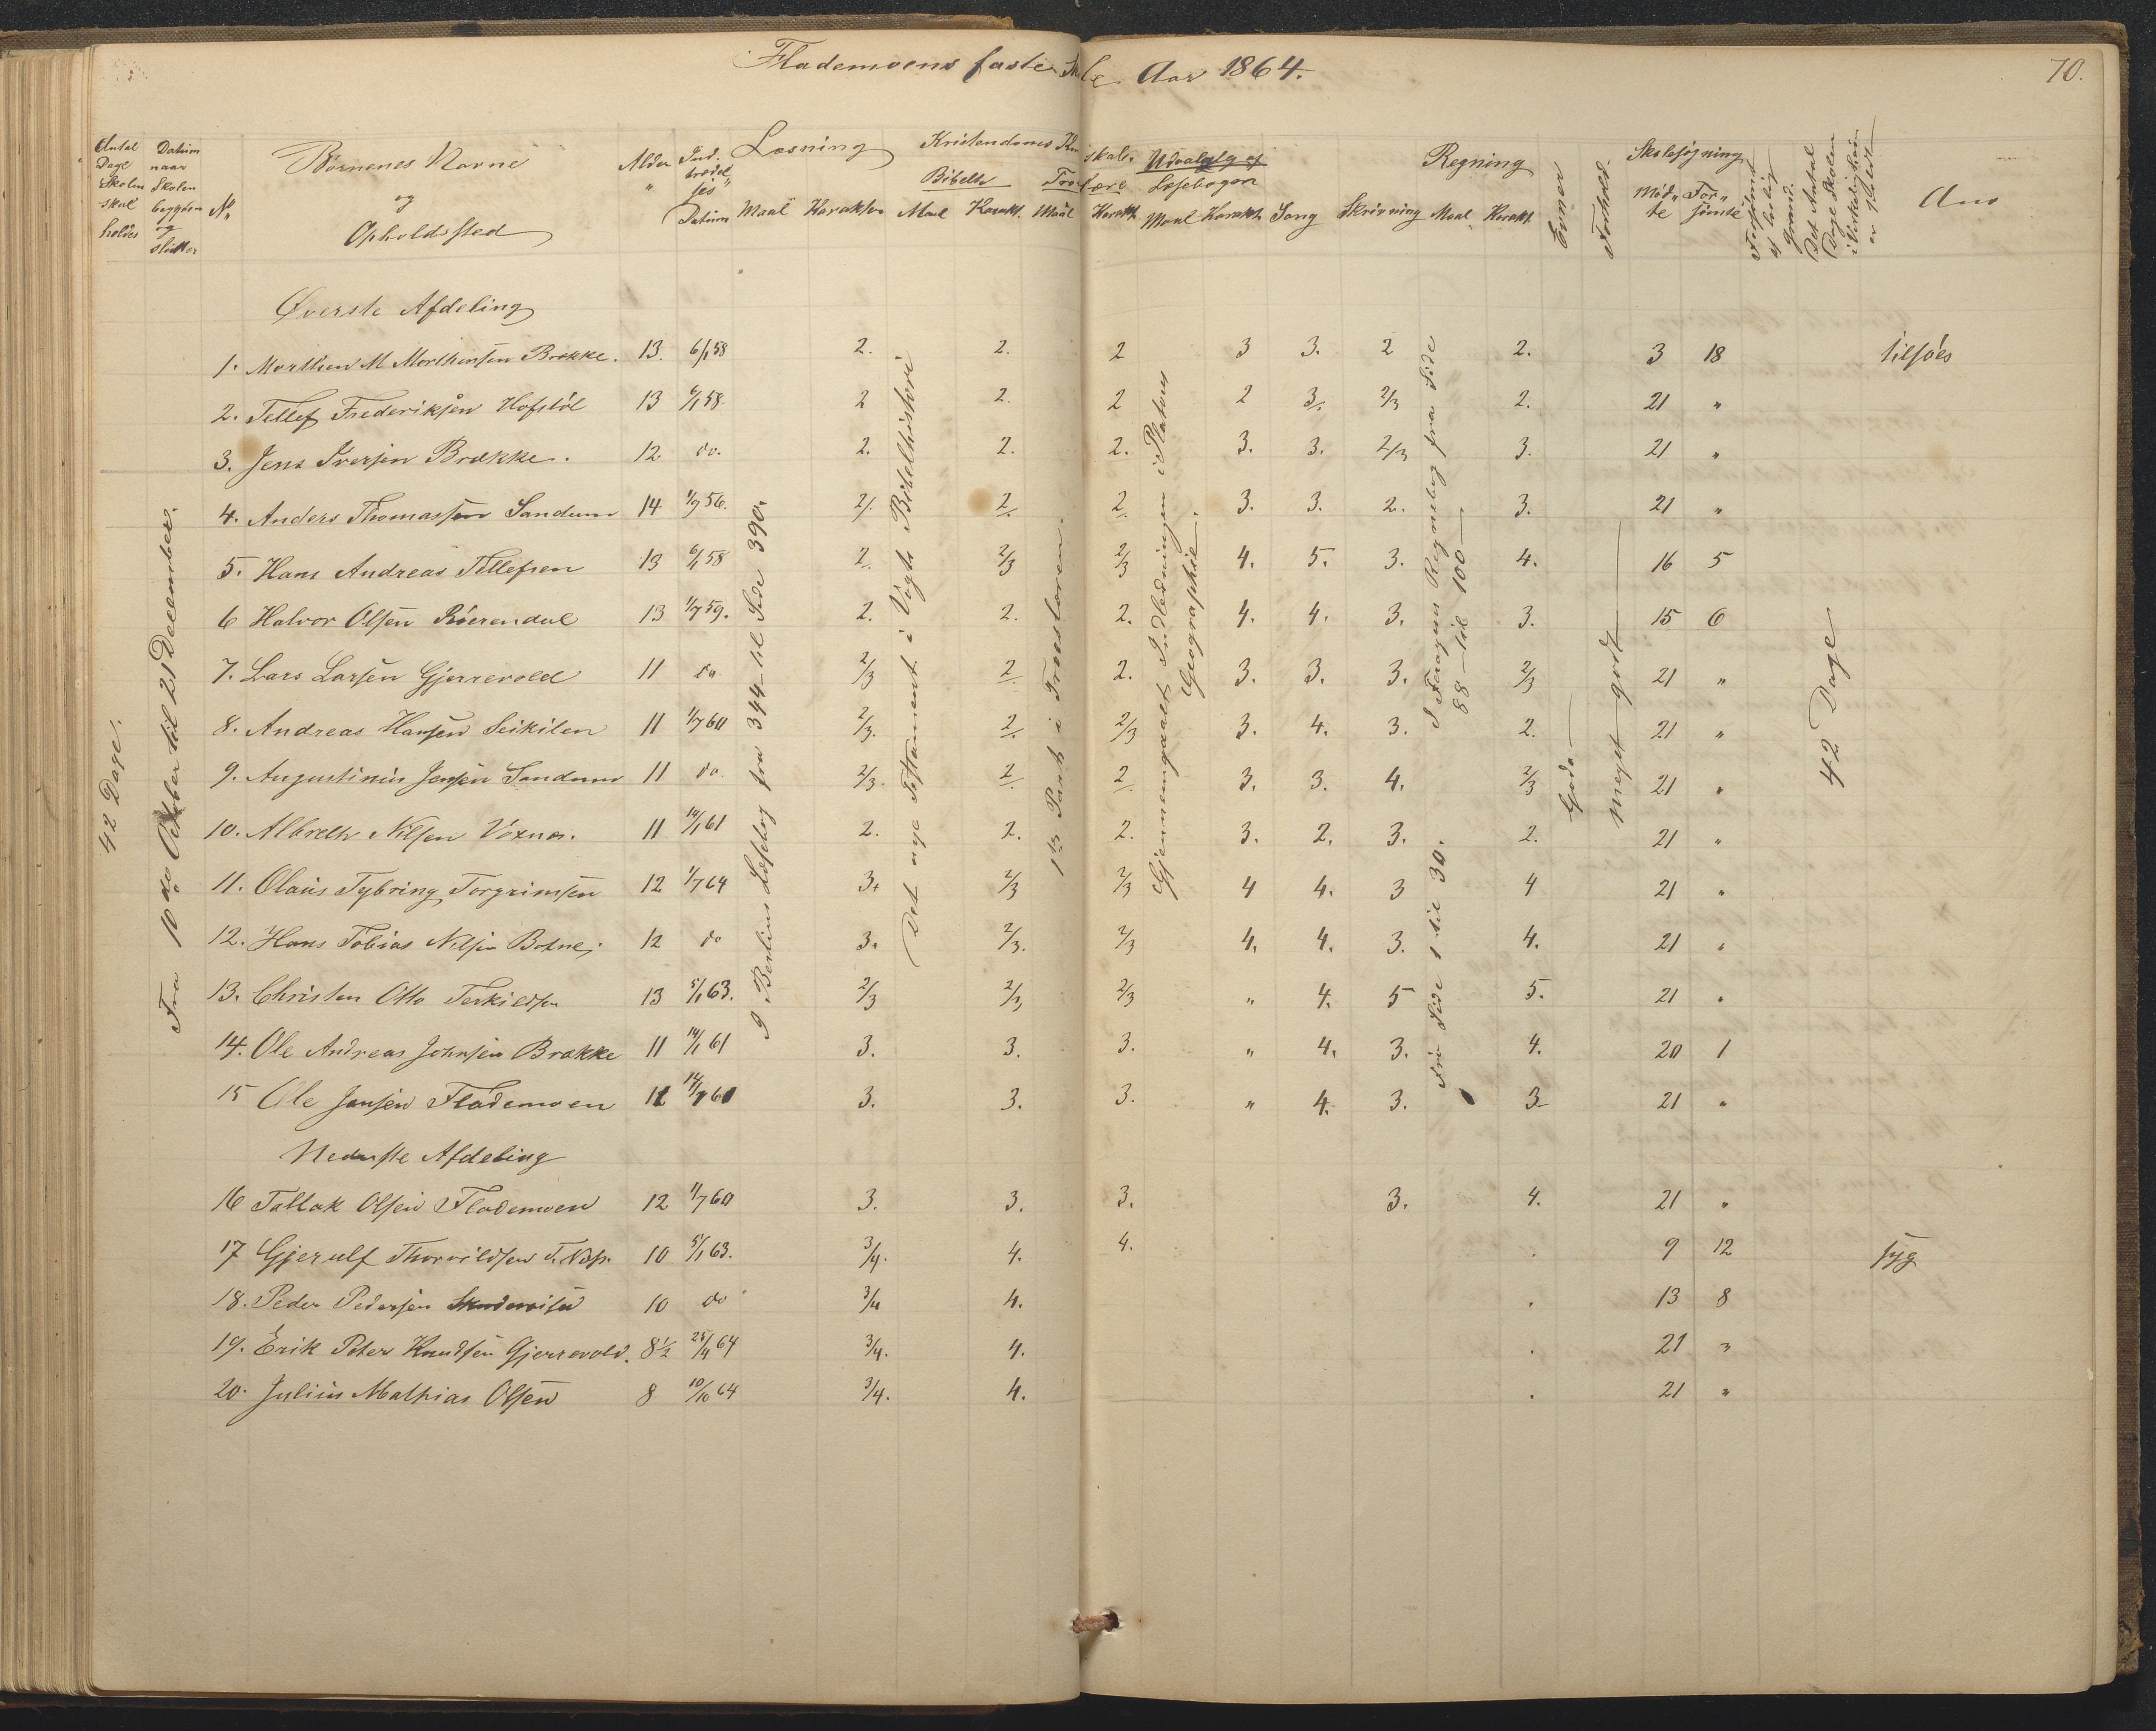 Flademoens faste Skole Aar 1864.
70.
Antal Dage Skolen skal holdes
Datum naar Skolen begynder og slutter
No
Börnenes Navne og Opholdssted
Alder
Ind. trædel ses Datum
Læsning
Maal Karakter
Kristendoms Kundskab.
Bibelh
Maal Karakt.
Troeslære
Maal Karakt.
Udvalg af Læsebogen
Maal Karakt.
Sang
Skrivning
Regning
Maal Karakt
Evner
Forhold.
Skolesögning
Mödte Forsömte
Forsömt af lovlig Grund.
Det Antal Dage Skolen i Virkeligheden er holdt
Anm
42 Dage.
Fra 10de Oktober til 21 December.
I Bentlius Læsebog fra 344 til Side 390.
Det nye Testament i Vogts Bibelhistori
1ste Part i Troeslæren.
Gjennemgaaet Indledningen i Platous Geographie.
I Foragus Regnebog fra Side 88 til 100
Fra Side 1 til 30.
Gode
meget godt
42 Dage
Øverste Afdeling
1. Morthen M Morthensen Brække. 13. 6/1 58 2. 2. 2 3 3. 2 2. 3 18 tilsöes
2. Tellef Frederiksen Hofstöl 13 6/1 58. 2 2. 2 2 3. 2/3 2. 21 "
3. Jens Iversen Brække. 12 do. 2. 2. 2. 3. 3. 2/3 3. 21 "
4. Anders Thomassen Sandum 14 1/9 56. 2. 2. 2. 3. 3. 2. 3. 21 "
5. Hans Andreas Tellefsen 13 6/1 58 2. 2/3 2/3 4. 5. 3. 4. 16 5
6 Halvor Olsen Röerendal 13 1/7 59. 2. 2. 2. 4. 4. 3. 3. 15 6
7. Lars Larsen Gjerrevold 11 do 2/3 2. 2. 3. 3. 3. 2/3 21 "
8. Andreas Hansen Seikilen 11 1/7 60 2/3. 2. 2/3 3. 4. 3. 2. 21 "
9. Augustinus Jensen Sandum 11 do 2/3. 2. 2. 3. 3. 4. 2/3 21 "
10. Albreth Nilsen Voxnæs. 11 14/1 61 2. 2. 2. 3. 2. 3. 2. 21 "
11. Olaus Tybring Torgrimsen 12 1/7 64 3. 2/3 2/3 4 4. 3 4 21 "
12. Hans Tobias Nilsen Botne 12 do 3. 2/3. 2/3 4. 4. 3. 4. 21 "
13. Christen Otto Terkildsen 13 5/1 63. 2/3 2/3 2/3 " 4. 5 5. 21 "
14. Ole Andreas Johnsen Brække 11 14/1 61 3. 3. 3. " 4. 3. 4. 20 1
15 Ole Jensen Flademoen 12 14/1 61 3. 3. 3. " 4. 3. 3 21 "
Nederste Afdeling
16 Tallak Olsen Flademoen 12 1/7 60 3. 3. 3. 3. 4. 21 "
17 Gjerulf Thorvildsen 10 5/1 63. 3/4. 4. 4. 9 12 syg
18. Peder Pedersen 10 do 3/4 4. 13 8
19. Erik Peter Knudsen Gjerrevold. 8 1/2 25/4 64 3/4. 4. 21 "
20. Julius Mathias Olsen 8 10/10 64 3/4. 4. 21 "